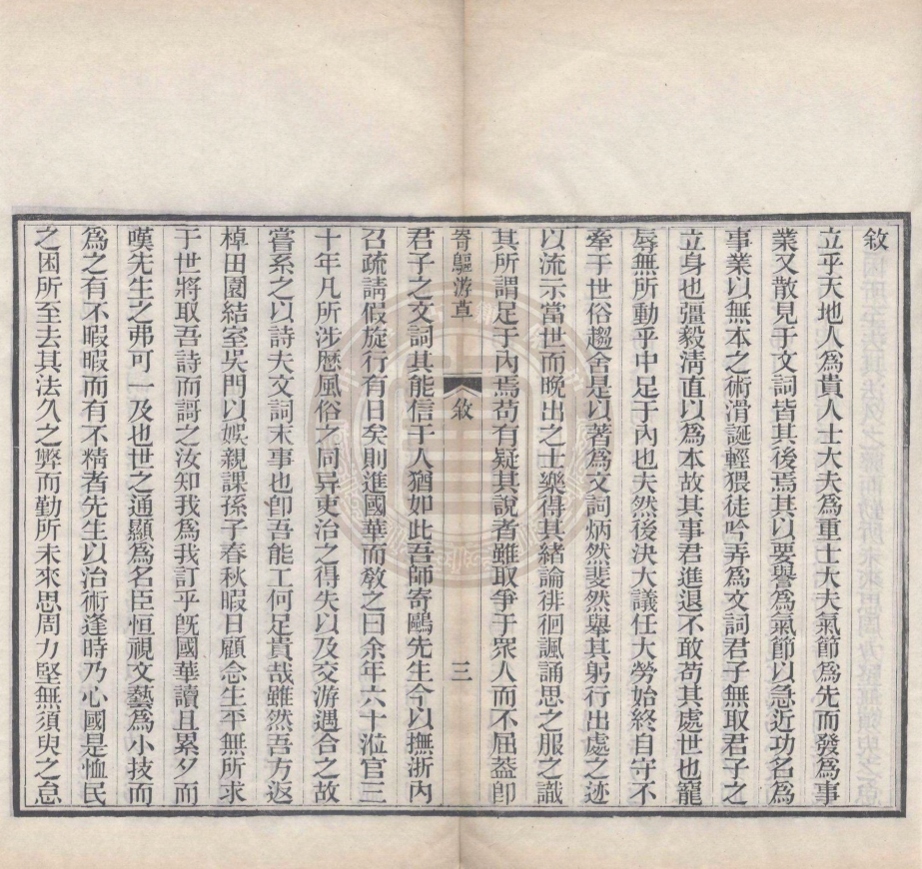 敘
立乎天地人爲貴人士大夫爲重士大夫氣節爲先而發爲事
業又散見于文詞皆其後焉其以要譽爲氣節以急近功名爲
事業以無本之術滑誕輕猥徒吟弄爲文詞君子無取君子之
立身也彊毅淸直以爲本故其事君進退不敢苟其處世也寵
辱無所動乎中足于內也夫然後決大議任大勞始終自守不
牽于世俗趨舍是以著爲文詞炳然斐然舉其躬行出處之迹
以流示當世而晚出之士樂得其緒論徘徊諷誦思之服之識
其所謂足于內焉苟有疑其說者雖取爭于衆人而不屈葢卽
寄鷗游草
敘
三
君子之文詞其能信于人猶如此吾師寄鷗先生今以撫浙內
召疏請假旋行有日矣則進國華而敎之曰余年六十涖官三
十年凡所涉歷風俗之同异吏治之得失以及交游遇合之故
嘗系之以詩夫文詞末事也卽吾能工何足貴哉雖然吾方返
棹田園結室吳門以娛親課孫子春秋暇日顧念生平無所求
于世將取吾詩而謌之汝知我爲我訂乎旣國華讀且累夕而
嘆先生之弗可一及也世之通顯爲名臣恒視文藝爲小技而
爲之有不暇暇而有不精者先生以治術逢時乃心國是恤民
之困所至去其法久之弊而勤所未來思周力堅無須臾之怠